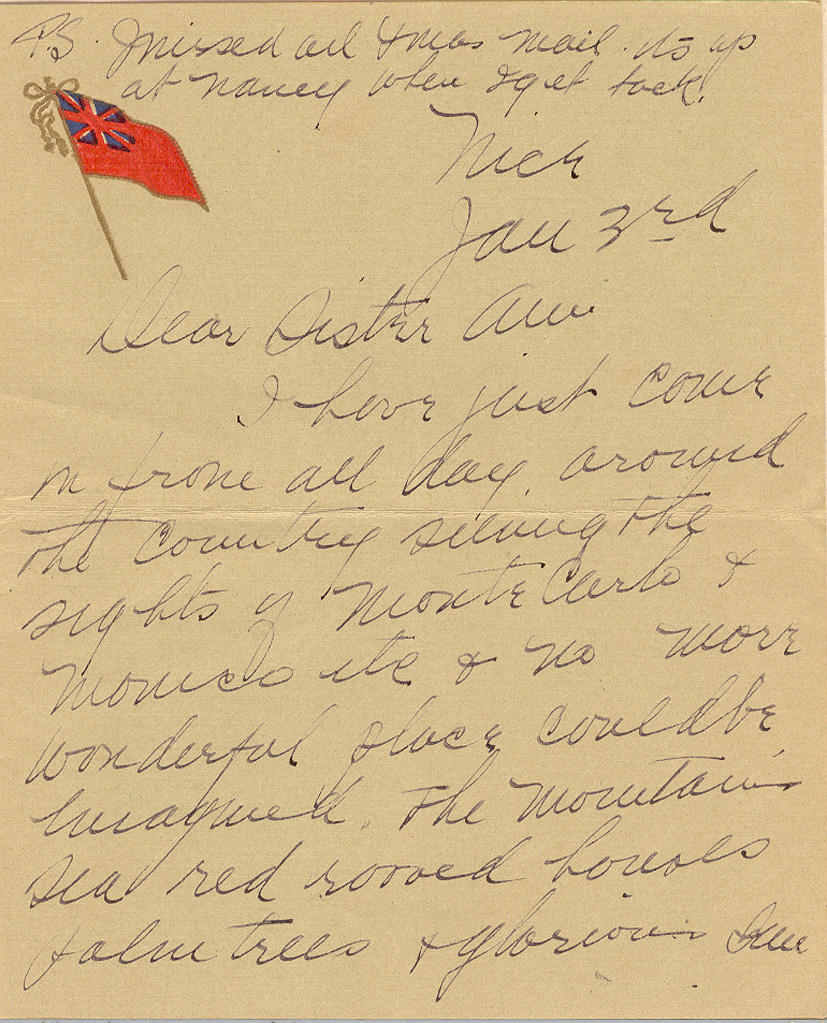 PS. I missed all Xmas mail. its up
at Nancy when I get back!
Nice
Jan 3rd
Dear Sister Ann
I have just come
in from all day around
the country seeing the
sights of Monte Carlo &
Monico etc & no more
wonderful place could be
imagined. The mountains
sea red roofed houses
palm trees & glorious sun